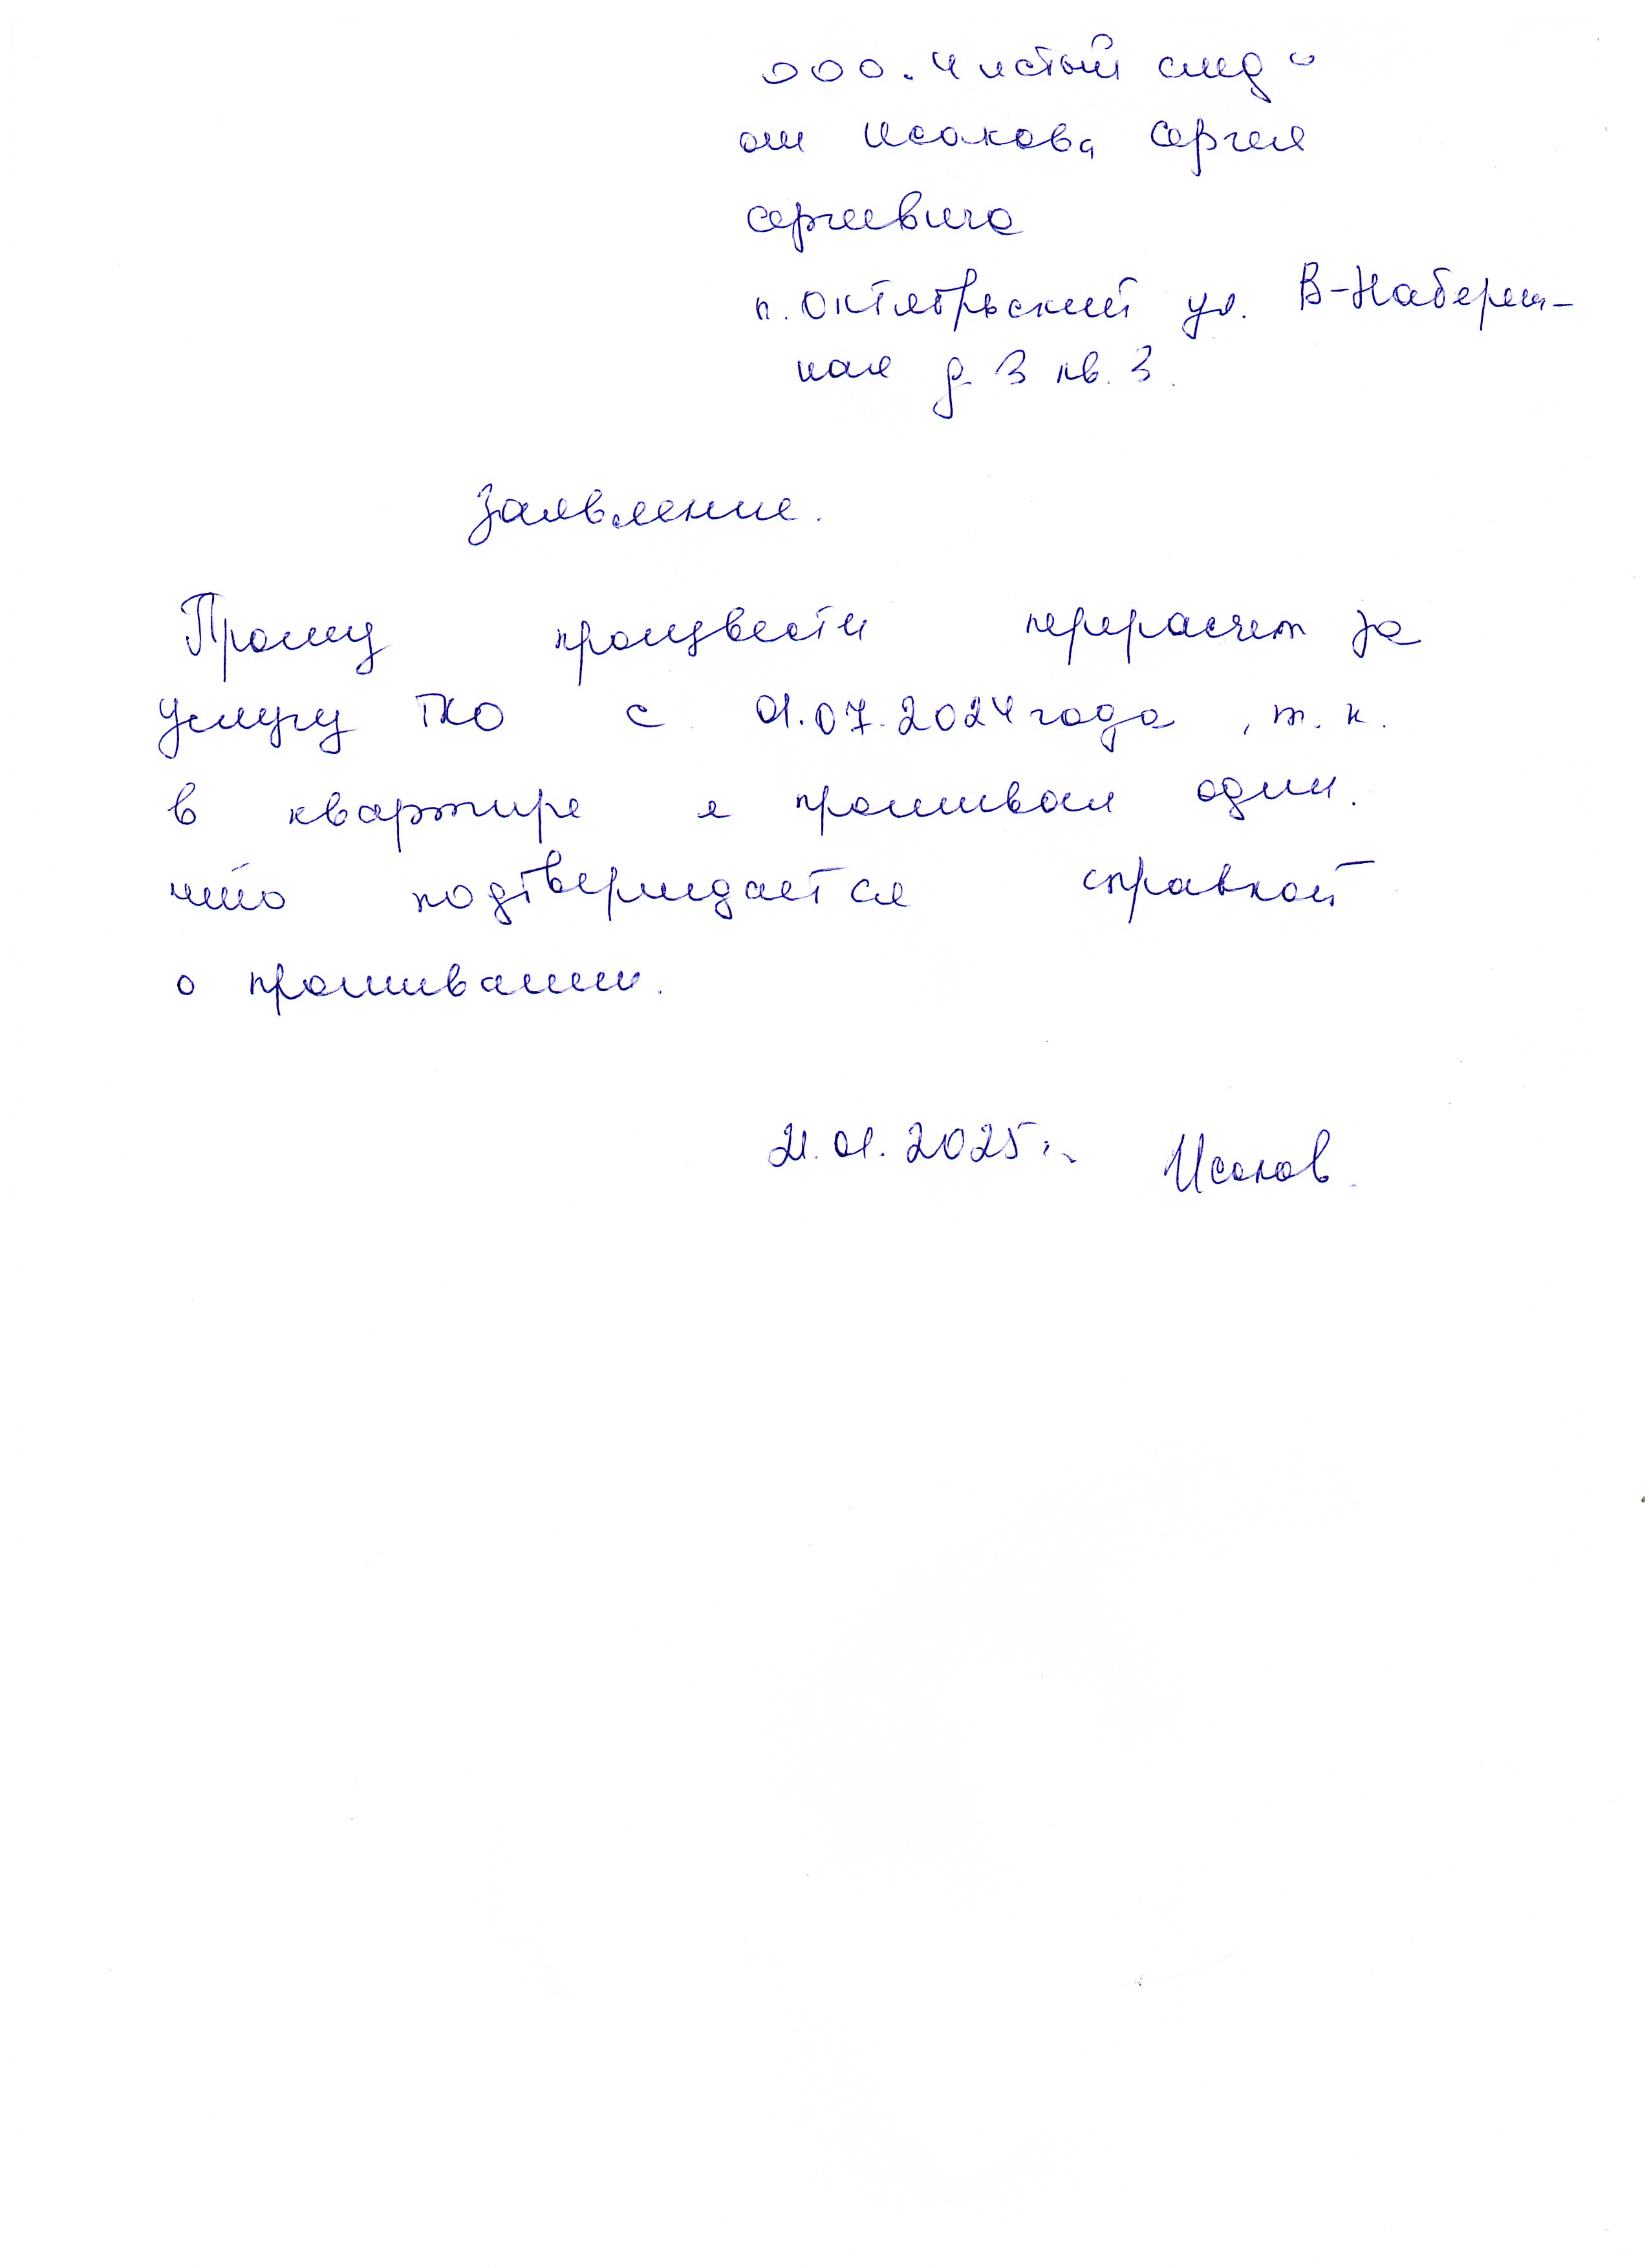 ООО "Чистый след"
от Исакова Сергея
Сергеевича
п. Октябрьский ул. В-Набереж-
ная д 3 кв. 3.
Заявление.
Прошу произвести перерасчет за
услугу ТКО с 01.07.2024 года, т.к.
в квартире я проживал один.
что подтверждается справкой
о проживании.
21.01.2025 г. Исаков.